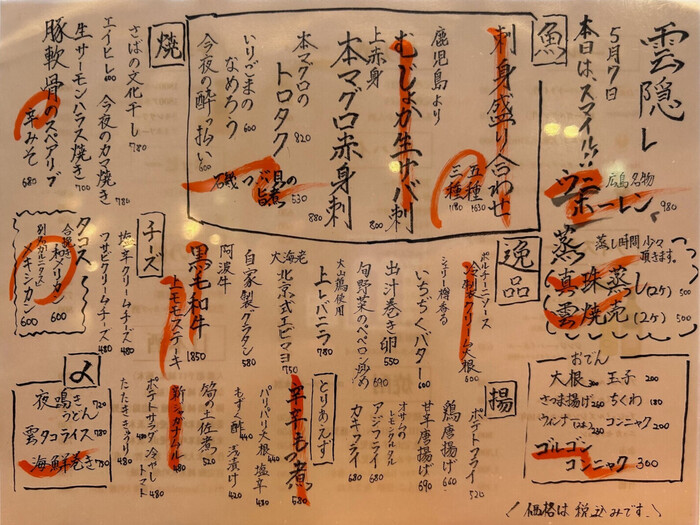 雲隠レ
5月7日
本日は、スマイル!!
広島名物
ウニホーレン 980
蒸
蒸し時間少々頂きます。
真珠蒸し(2ヶ) 500
雲焼売(2ヶ) 500
おでん
大根 300
玉子 200
さつま揚げ 250
ちくわ 180
ウィンナー(2本) 250
コンニャク 200
ゴルゴンコンニャク 300
魚
刺身盛り合わせ
五種 1630
三種 1180
鹿児島より
むじょか生サバ刺 800
上赤身
本マグロ赤身刺 880
本マグロの
トロタク 820
磯つぶ貝の旨煮 530
いりごまの
なめろう 600
今夜の酔っ払い 600
焼
さばの文化干し 780
エイヒレ 600
今夜のカマ焼き 780
生サーモンハラス焼き 700
豚軟骨のスペアリブ
辛みそ 680
逸品
ポルチーニソース
冷製クリーム大根 600
シェリー樽香る
いちぢくバター 600
出汁巻き卵 550
旬野菜のペペロン炒め 690
大山鶏使用
上レバニラ 780
大海老
北京式エビマヨ 750
自家製グラタン 580
阿波牛
黒毛和牛
上モモステーキ 1850
チーズ
塩辛クリームチーズ 480
ワサビクリームチーズ 480
タコス
合挽き
アメリカン 600
メキシカン 600
揚
ポテトフライ 520
鶏唐揚げ 660
甘辛唐揚げ 690
オサムの
レモンタルタル
アジフライ 680
カキフライ 680
とりあえず
辛辛もつ煮 580
パリパリ大根塩辛 480
もずく酢 440
浅漬け 420
筍の土佐煮 520
新ジャガナムル 480
ポテトサラダ 480
冷やしトマト 480
たたききゅうり 480
〆
夜鳴きうどん 720
雲タコライス 780
海鮮巻き 750
価格は税込みです。